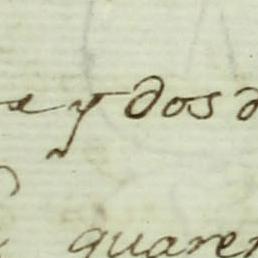 y dos
quaren